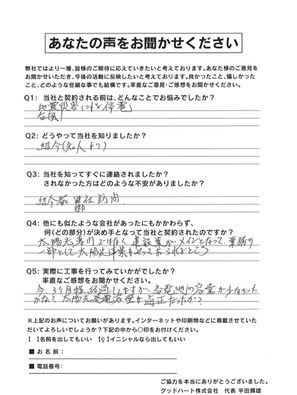 あなたの声をお聞かせください
弊社ではより一層、皆様のご期待に応えていきたいと考えております。あなた様のご意見を
お聞かせいただき、今後の活動に反映したいと考えております。良かったこと、嬉しかった
こと、どのような些細な事でも結構です。率直なご意見・ご感想をお聞かせください。
Q1: 当社と契約される前は、どんなことでお悩みでしたか?
地震災害による停電
Q2: どうやって当社を知りましたか?
紹介(知人より)
Q3: 当社を知ってすぐに連絡されましたか?
されなかった方はどのような不安がありましたか?
紹介者
Q4: 他にも似たような会社があったにもかかわらず、
何(どの部分)が決め手となって当社と契約されたのですか?
太陽光専門ではなく 建設業がメインとなって、業務の
一部として太陽光事業を
Q5: 実際に工事を行ってみていかがでしたか?
率直なご感想をお聞かせください。
今、3ヶ月程経過してますが、蓄電池の容量が少なかった
かな? 太陽光発電容量は適正だったか?
※上記のお声についてお願いがあります。インターネットや印刷物などに掲載させていた
だいてよろしいでしょうか?下記の中から○印をお付けください。
【 】名前を出してもいい 【 】イニシャルなら出してもいい
■ お 名 前:
■ 電話番号:
ご協力を本当にありがとうございました。
グッドハート株式会社 代表 平田輝雄